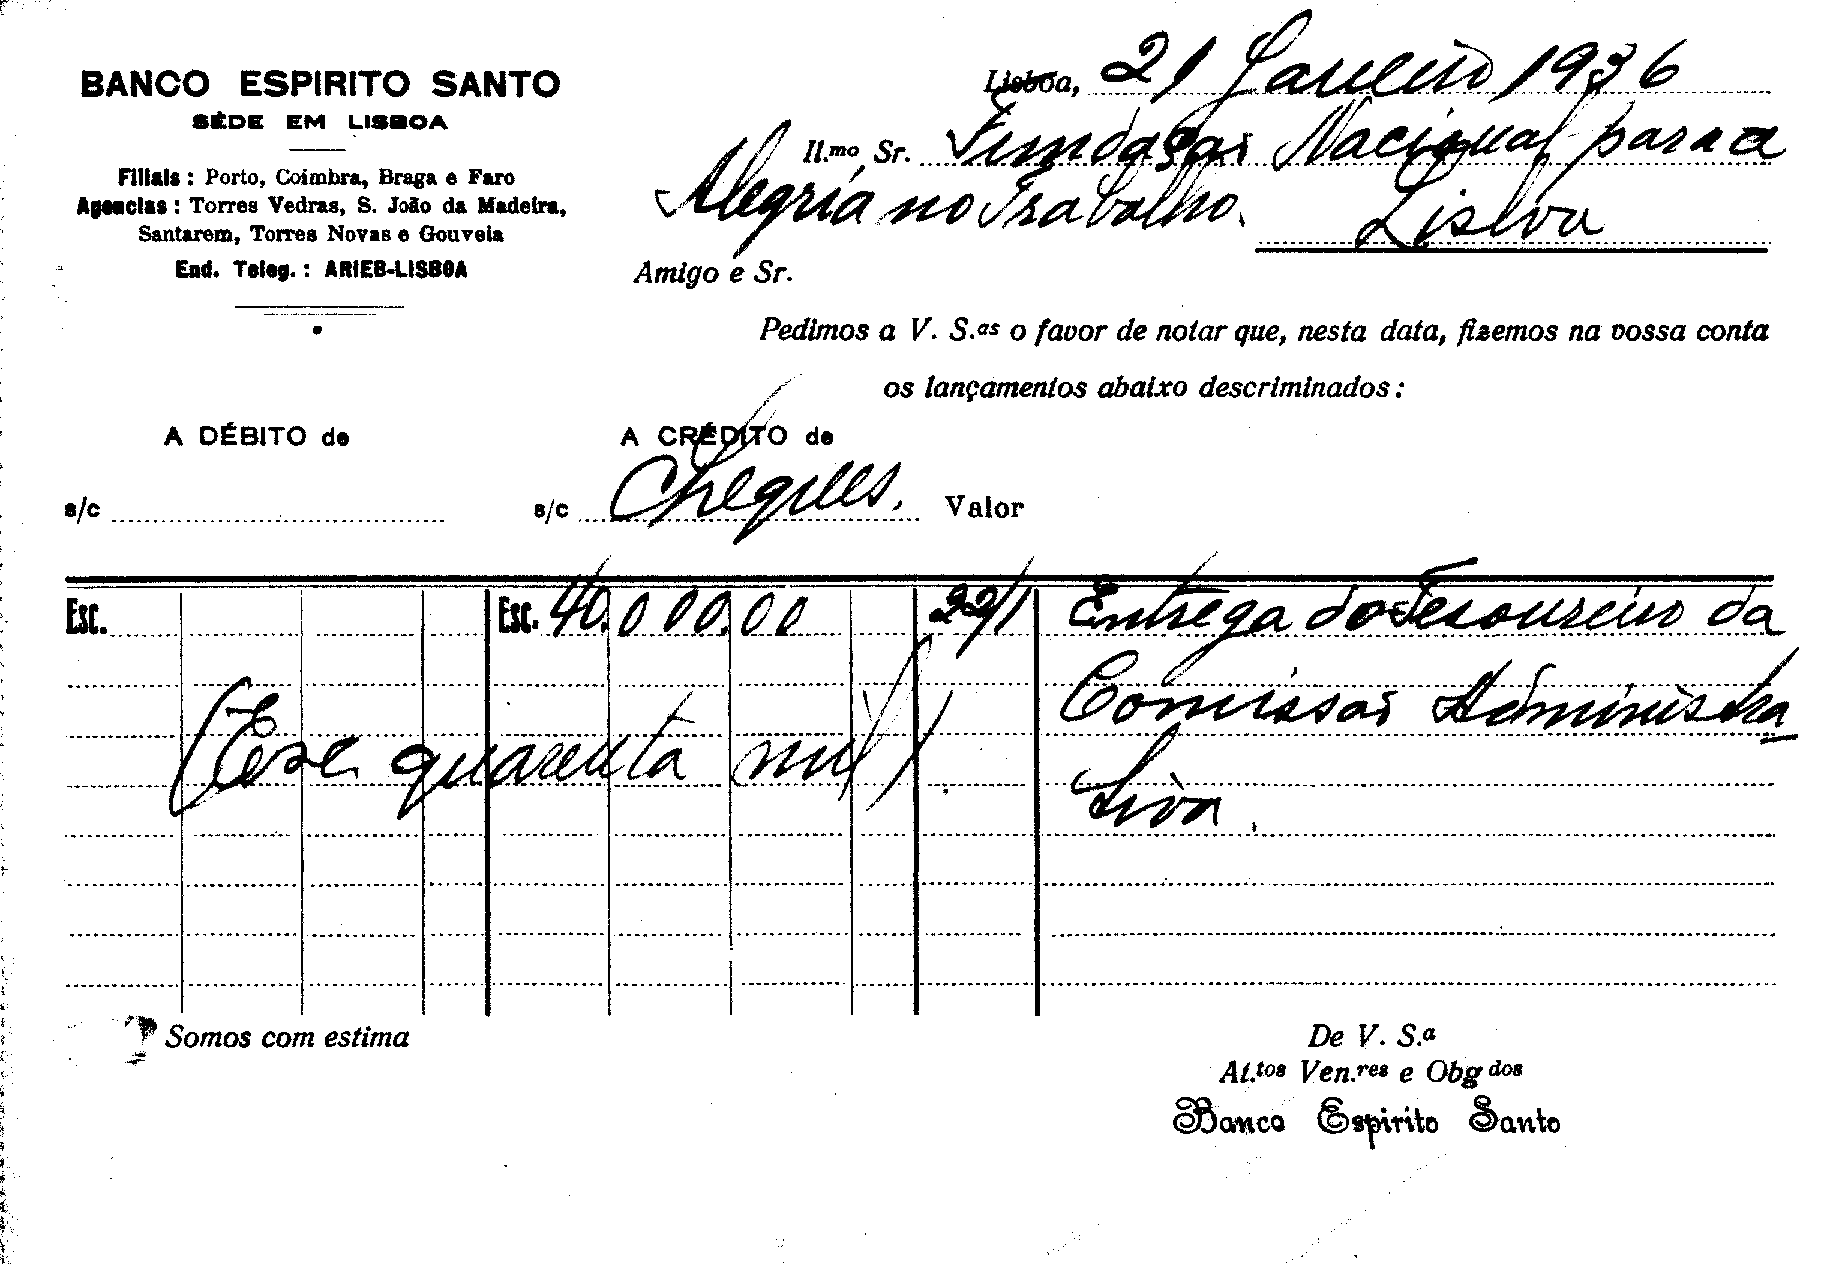 BANCO ESPIRITO SANTO
SÉDE EM LISBOA
Filiais : Porto, Coimbra, Braga e Faro
Agencias : Torres Vedras, S. João da Madeira,
Santarem, Torres Novas e Gouveia
End. Teleg. : ARIEB-LISBOA
Lisboa, 21 Janeiro 1936
Il.mo Sr. Fundação Nacional para a
Alegria no Trabalho.
Lisboa
Amigo e Sr.
Pedimos a V. S.as o favor de notar que, nesta data, fizemos na vossa conta
os lançamentos abaixo descriminados :
A DÉBITO de A CRÉDITO de
s/c s/c Cheques. Valor
Esc. Esc. 40.000.00 22/1 Entrega do Tesoureiro da
Comissão Administra
(Esc quarenta mil)
tiva.
Somos com estima
De V. S.a
At.tos Ven.res e Obgdos
Banco Espirito Santo